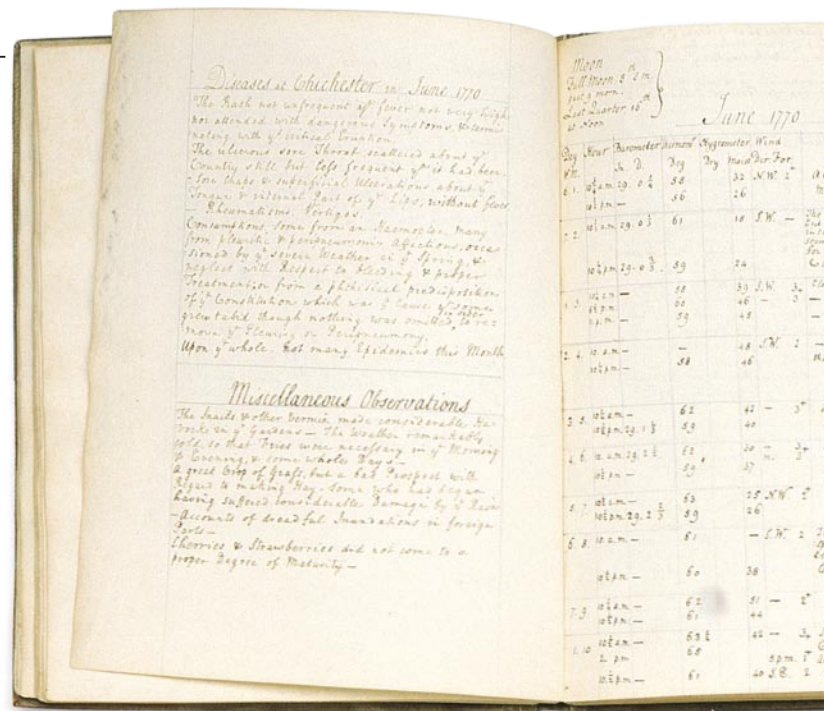 Diseases at Chichester in June 1770
The Rash not unfrequent yᵉ fever not very high
nor attended with dangerous Symptoms, & termi-
nating with yᵉ critical Eruption
The ulcerous sore Throat scattered about yᵉ
Country still but less frequent yⁿ it had been.
- Sore Chaps & superficial Ulcerations about yᵉ
Tongue & internal Part of yᵉ Lips, without fever
- Rheumatisms. Vertigos.
Consumptions, some from an Haemoptoe, many
from pleuritic & peripneumonic Affections, occa-
sioned by yᵉ severe Weather in yᵉ Spring, &
neglect with Respect to bleeding & proper
Treatment, or from a phthisical predisposition
of yᵉ Constitution which was yᵉ cause yᵗ some
grew tabid though nothing was omitted in order to re-
move yᵉ Pleurisy or Peripneumony.
Upon yᵉ whole, not many Epidemics this Month
Miscellaneous Observations
The Snails & other Vermin made considerable Ha-
vock in yᵉ Gardens — The Weather remarkably
cold, so that Fires were necessary in yᵉ Morning
& Evening, & some whole Days —
A great Crop of Grass, but a bad Prospect with
Regard to making Hay. Some who had begun
having suffered considerable Damage by yᵉ Rains
— Accounts of dreadful Inundations in foreign
Parts —
Cherries & Strawberries did not come to a
proper Degree of Maturity —
Moon
Full Moon 8th
morn.
Last Quarter 16th
at Noon
June 1770
Day Hour Barometer Hygrometer Wind
W.M. In. D. Deg Dry moist Dir. For.
6. 1. 10½ a.m. 29. 0 58 32 N.W. 2
10½ p.m — 56 26
7. 2. 10½ a.m. 29. 0 61 10 S.W. —
10½ p.m. 29. 0 59 24
1. 3. 10½ a.m — 58 39 S.W. 3
p.m — 60 46 — 3 —
p.m. — 59 48 —
2. 4. 10. a.m — — 48 S.W. 2 —
10½ p.m — 58 46
3. 5. 10½ a.m — 62 42 — 3
10½ p.m. 29. 1 59 40
4. 6. 10. a.m. 29. 2 62 30 —
10½ p.m — 59 37
5. 7. 10½ a.m — 63 25 N.W. 2
10½ p.m. 29. 2 59 26
6. 8. 10 a.m. — 61 — S.W. 2
10½ p.m. — 60 38
7. 9. 10½ a.m — 62 51 — 2
10½ p.m. — 61 44
1. 10 10½ a.m — 63 42 — 3
2. pm 65 8 p.m. 1
10½ p.m — 61 40 S.E. 2